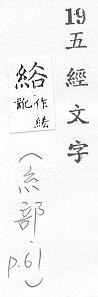 19五經文字
綌
作
訛
(糸部·p.61)